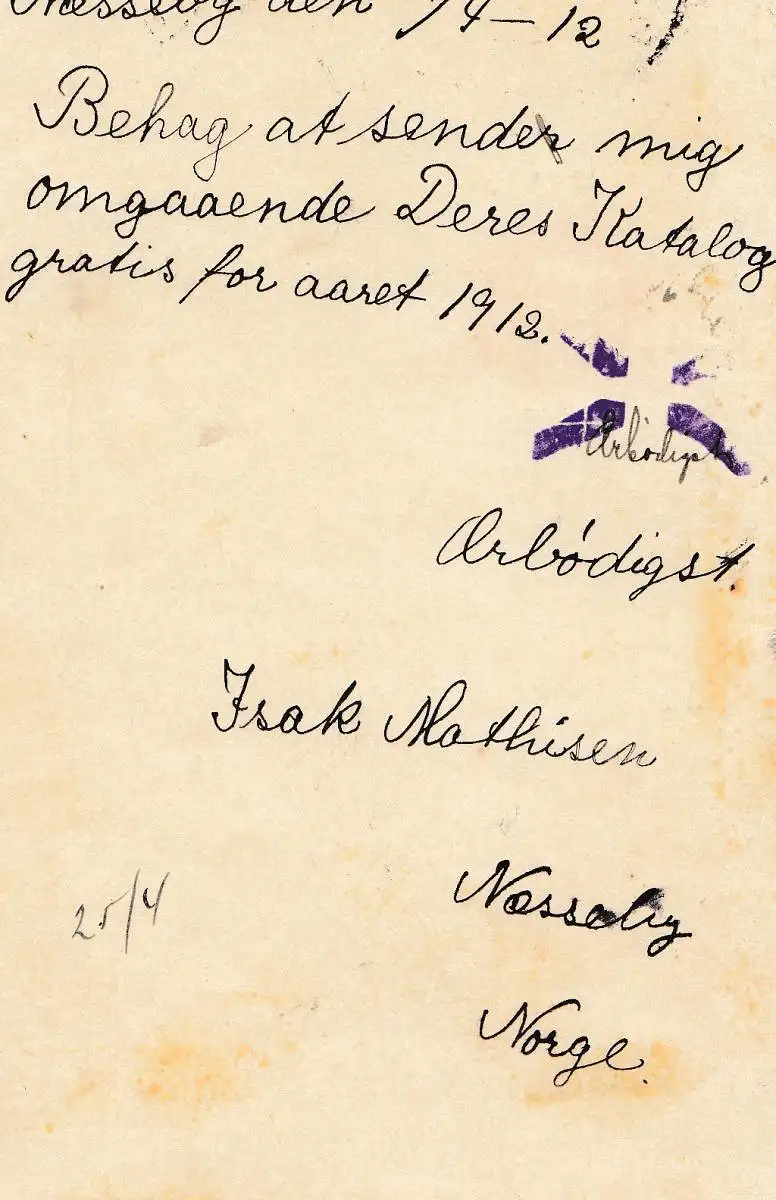 Næsseby den /4 – 12
Behag at sende mig
omgaaende Deres Katalog
gratis for aaret 1912.
Ærbødigst
Ærbódigst.
Isak Mathisen
25/4
Næsseby
Norge.